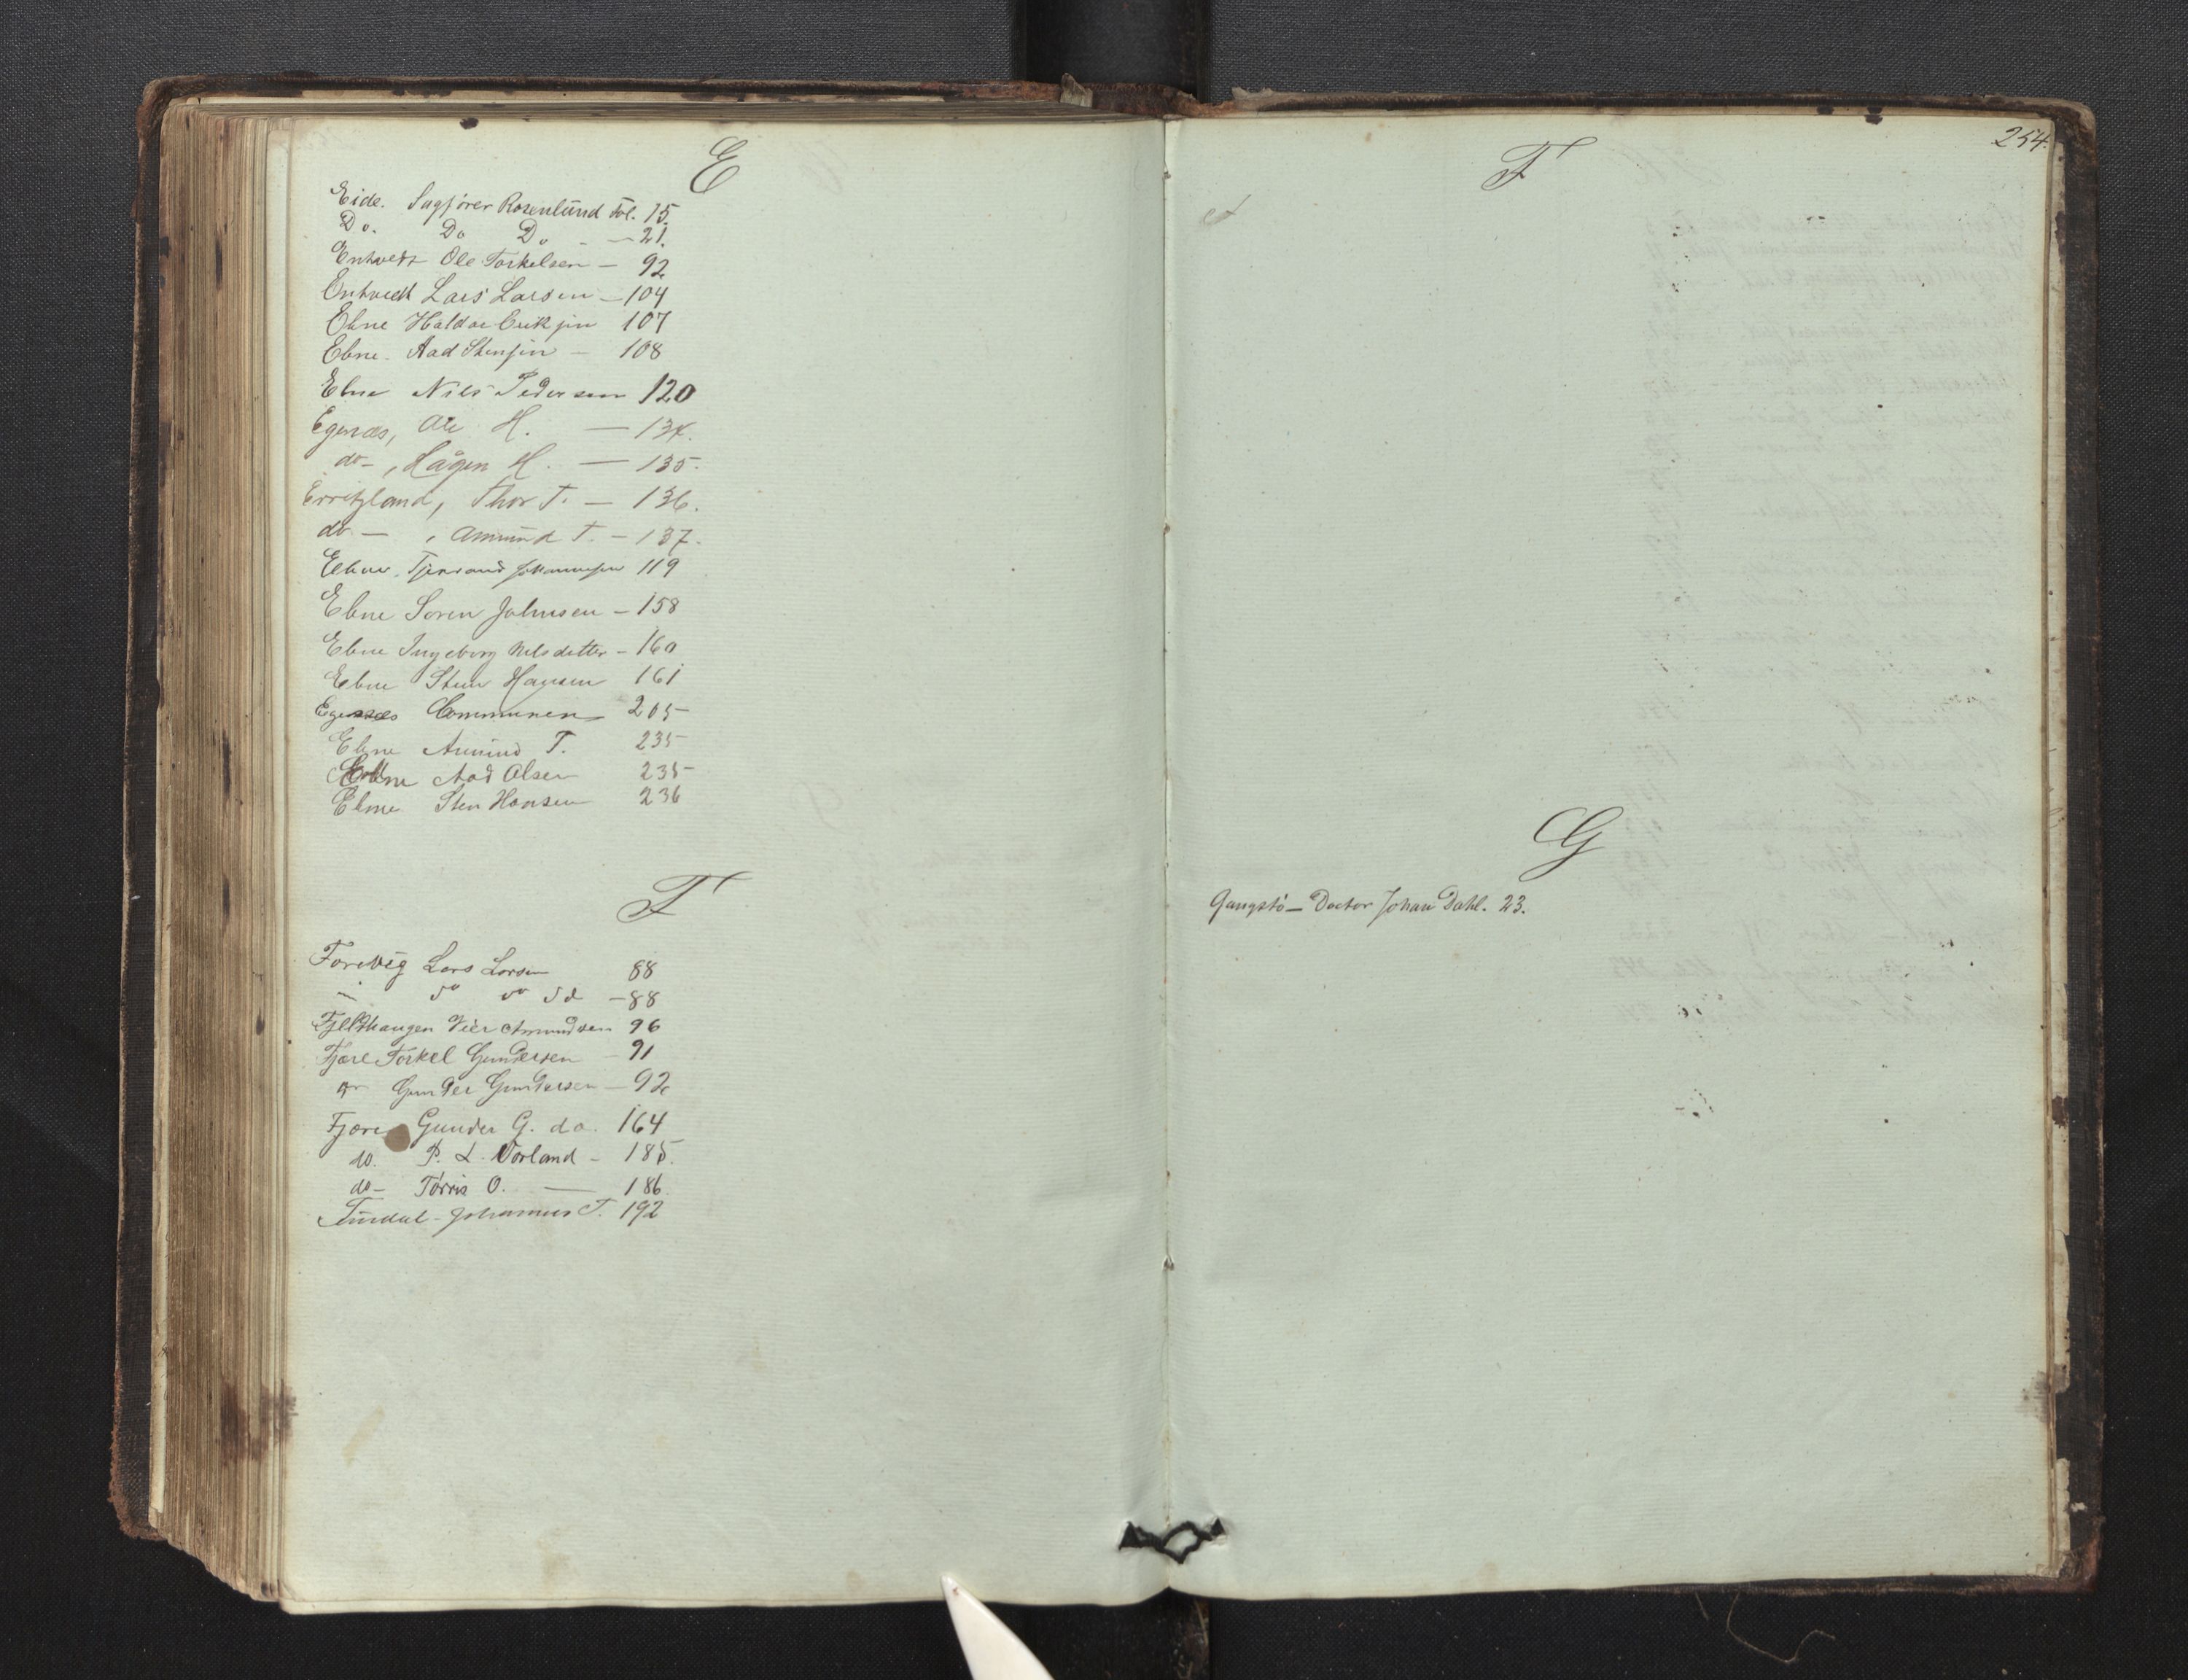 E
Eide. Sagfører Rosenlund Fol. 15.
Do. Do Do - 21.
Entvedt Ole Torkelsen - 92
Entvedt Lars Larsen - 104
Ebne Haldor Erikssen 107
Ebne. Aad Stensen - 108
Ebne Nils Pedersen 120
Egenæs, Ole H. - 134.
do -, Hågen H. - 135.
Erritzland, Thor T. - 136.
do - , Amund T. - 137.
Ebne Tjerand Johannesen 119
Ebne Soren Johnsen - 158
Ebne Ingeborg Nelsdatter - 160
Ebne Sten Hansen 161
Egenæs Communen 205
Ebne Amund T. 235
Ebne Aad Olsen 235
Ebne Sten Hansen 236
F
Forevig Lars Larsen 88
- do do Sd - 88
Fjeldhaugen Peer Amundsen 96
Fjære Torkel Gundersen - 91
do Gunder Gundersen - 92
Fjære Gunder G. do. 164
do. P. L. Vorland - 185.
do - Tørris O. - 186.
Johannes T. 192
254.
F
G
Gangstø - Doctor Johan Dahl. 23.